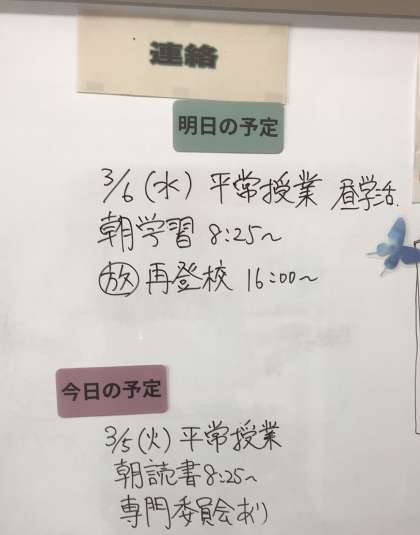 連絡
明日の予定
3/6(水) 平常授業 昼学活
朝学習 8:25〜
放 再登校 16:00〜
今日の予定
3/5(火) 平常授業
朝読書8:25〜
専門委員会あり